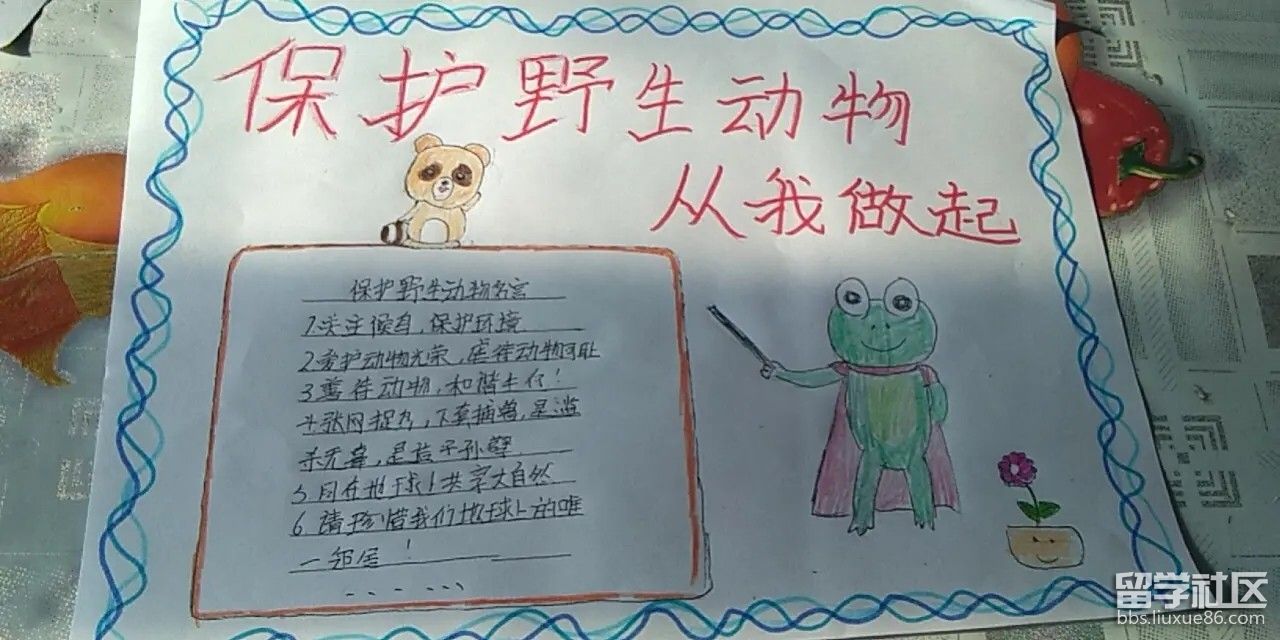 保护野生动物
从我做起
保护野生动物名言
1.关注候鸟,保护环境
2.爱护动物光荣,虐待动物可耻
3.善待动物,和谐共存!
4.张网捉鸟,下套捕兽,是滥
杀无辜,是造子孙孽
5.同在地球上共享大自然
6.请珍惜我们地球上的唯
一邻居!
......
留学社区
bbs.liuxue86.com